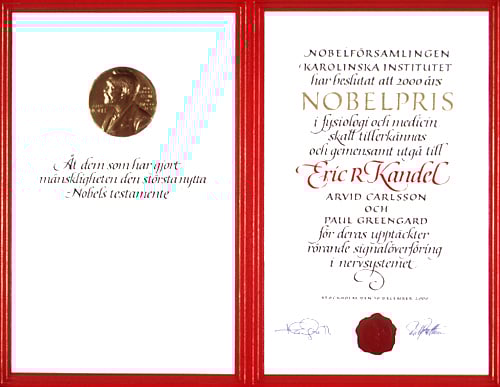 Åt dem som har gjort
mänskligheten den största nytta
Nobels testamente
NOBELFÖRSAMLINGEN
KAROLINSKA INSTITUTET
har beslutat att 2000 års
NOBELPRIS
i fysiologi och medicin
skall tillerkännas
och gemensamt utgå till
Eric R Kandel
ARVID CARLSSON
OCH
PAUL GREENGARD
för deras upptäckter
rörande signalöverföring
i nervsystemet
STOCKHOLM DEN 10 DECEMBER 2000